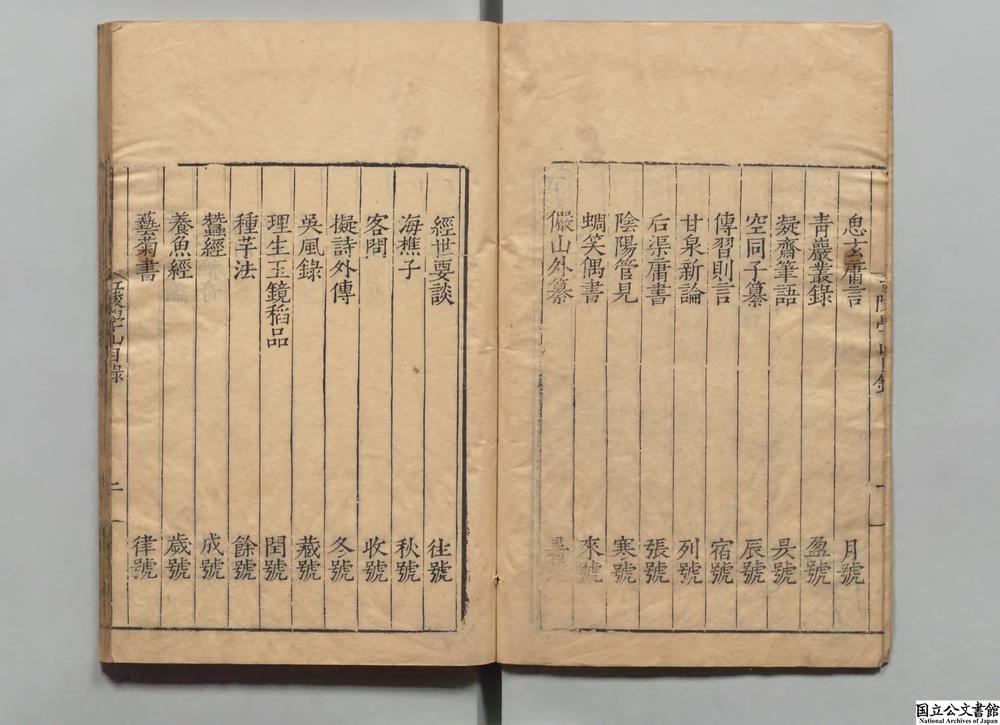 思玄庸言 月號
青巖叢錄 盈號
凝齋筆語 昃號
空同子纂 辰號
傳習則言 宿號
甘泉新論 列號
后渠庸書 張號
陰陽管見 寒號
蜩笑偶書 來號
儼山外纂 暑
經世要談 往號
海樵子 秋號
客問 收號
擬詩外傳 冬號
吳風錄 藏號
理生玉鏡稻品 閏號
種芋法 餘號
蠶經 成號
養魚經 歲號
藝菊書 律號
陵學山目錄 二
国立公文書館
National Archives of Japan